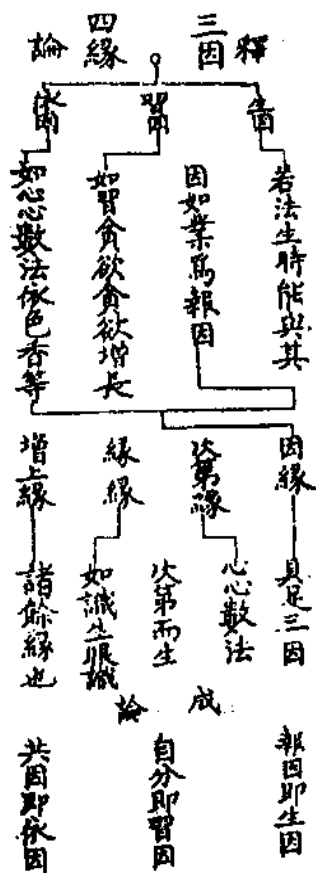 釋
三因
四緣
論
生因
若法生時能與其
因如業為報因
習因
如習貪欲貪欲增長
依因
如心心數法依色香等
因緣
具足三因
次第緣
心心數法
次第而生
緣緣
如識生眼識
增上緣
諸餘緣也
成
論
報因即生因
自分即習因
共因即依因